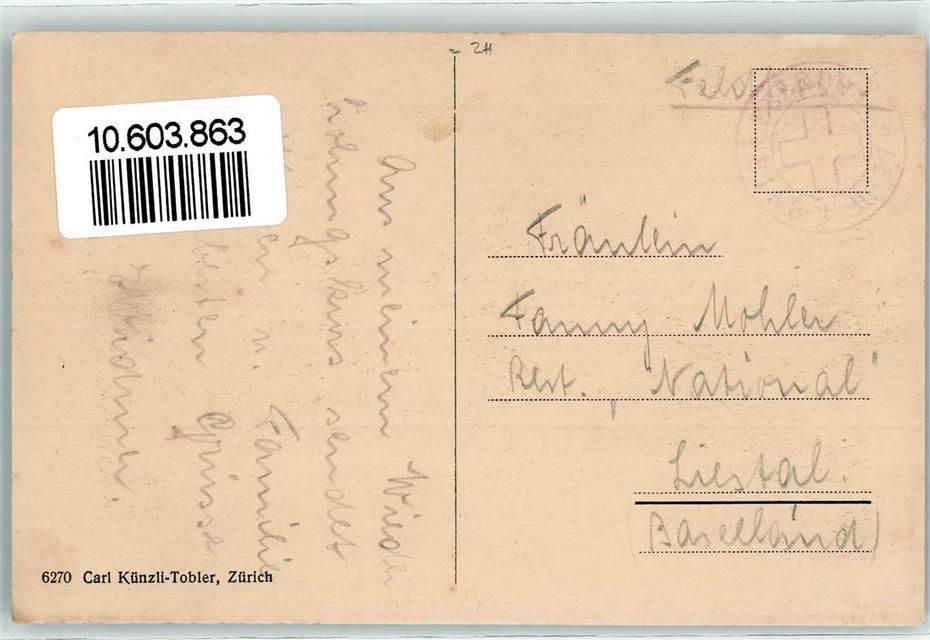 ZH
10.603.863
Aus meinem Wieder
holungskurs sendet
u. Familie
besten Grüsse
Widmer.
Feldpost
Fräulein
Fanny Mohler
Rest. "National"
Liestal.
(Baselland)
6270 Carl Künzli-Tobler, Zürich